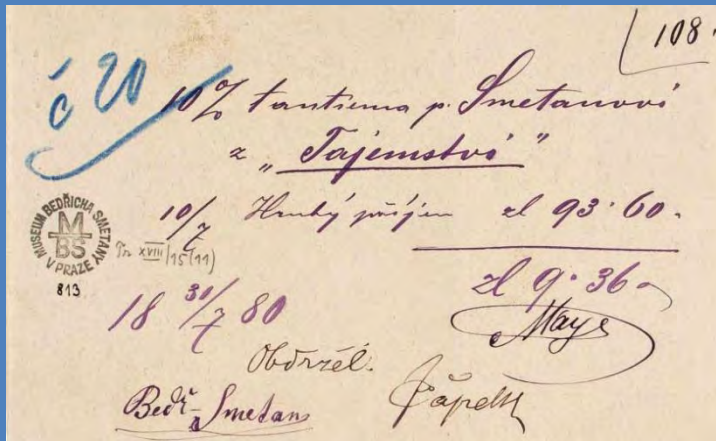 108.
č 20
10% tantiema p. Smetanovi
z „Tajemství"
10/7 Hrubý příjem zl 93·60
zl 9·36
MUSEUM BEDŘICHA SMETANY V PRAZE
M
BS
Tr XVIII/15(11)
813
18 31/7 80
Obdržel.
Bedř. Smetana